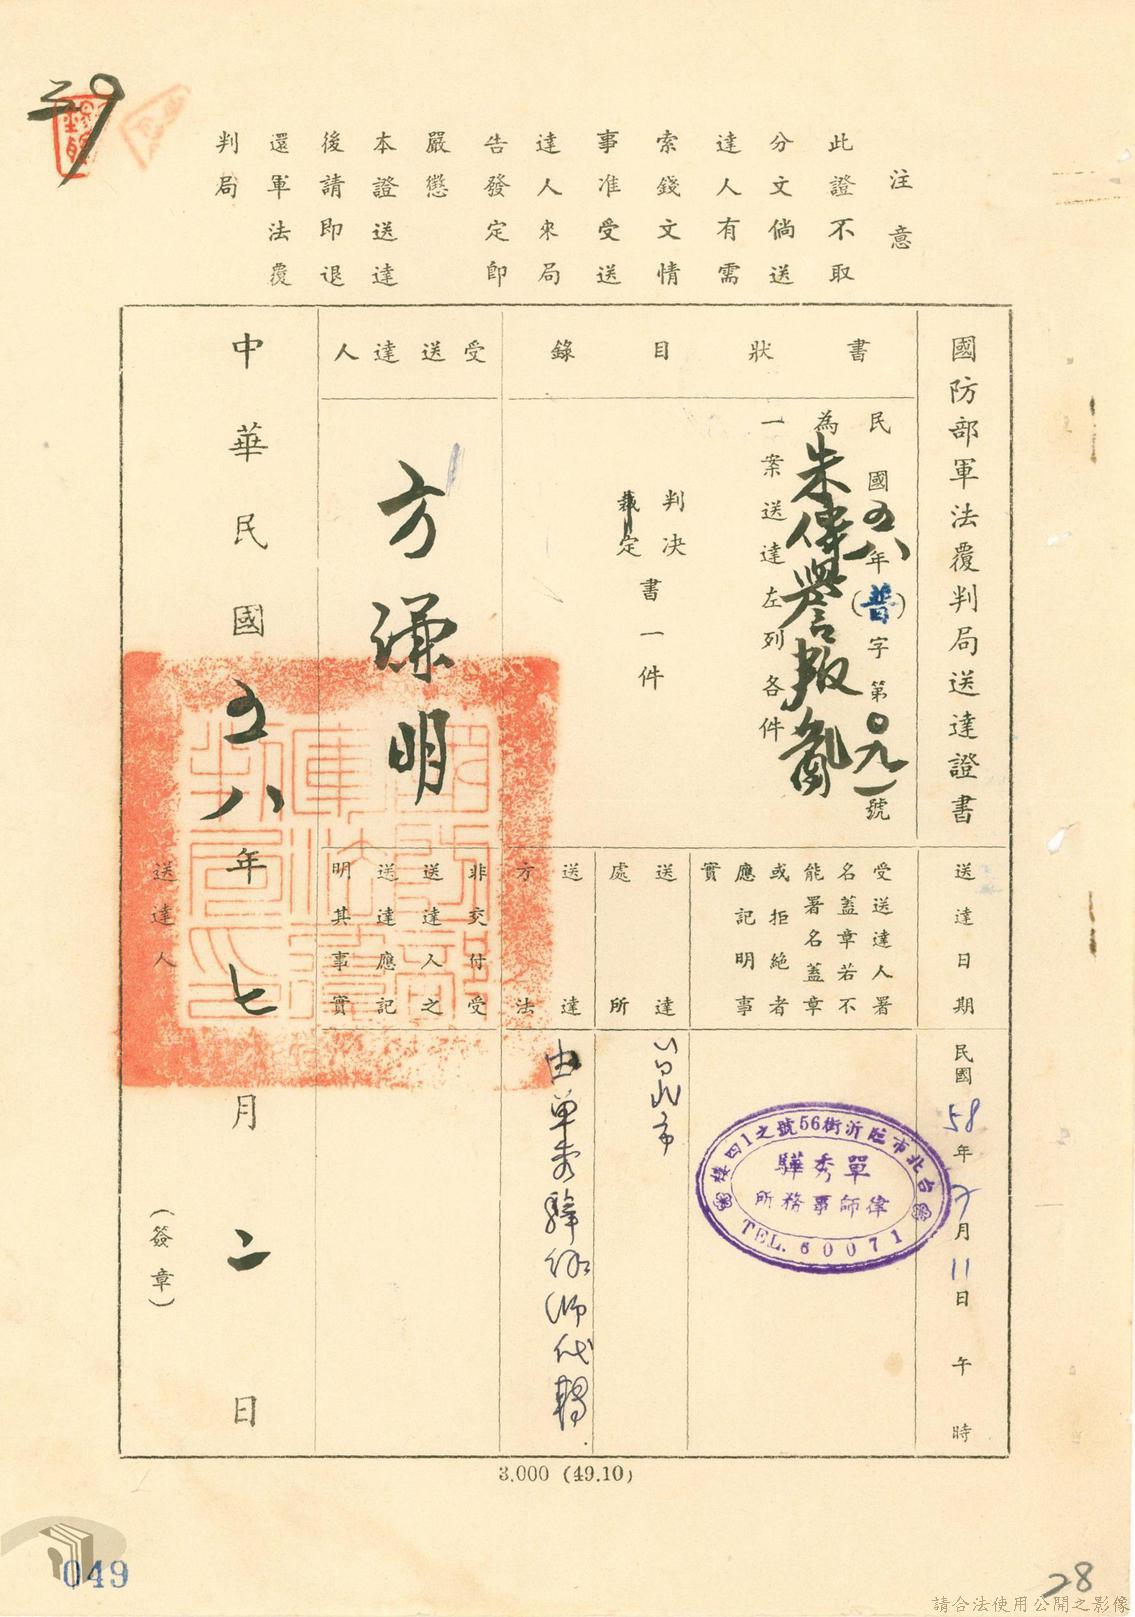 39
注意
此證不取
分文倘送
達人有需
索錢文情
事准受送
達人來局
告發定即
嚴懲
本證送達
後請即退
還軍法覆
判局
國防部軍法覆判局送達證書
書狀目錄
民國五八年(普)字第〇九一號
為朱偉譽叛亂
一案送達左列各件
判決
裁定
書一件
受送達人
方謙明
送達日期
民國58年7月11日午時
受送達人署
名蓋章若不
能署名蓋章
或拒絕者
應記明事
實
台北市臨沂街56號之1四樓
單秀驊
律師事務所
TEL.60071
送達
處所
台北市
送達
方法
由單秀驊律師代轉
非交付受
送達人之
送達應記
明其事實
中華民國五八年七月二日
送達人
(簽章)
3.000 (49.10)
049
28
請合法使用公開之影像